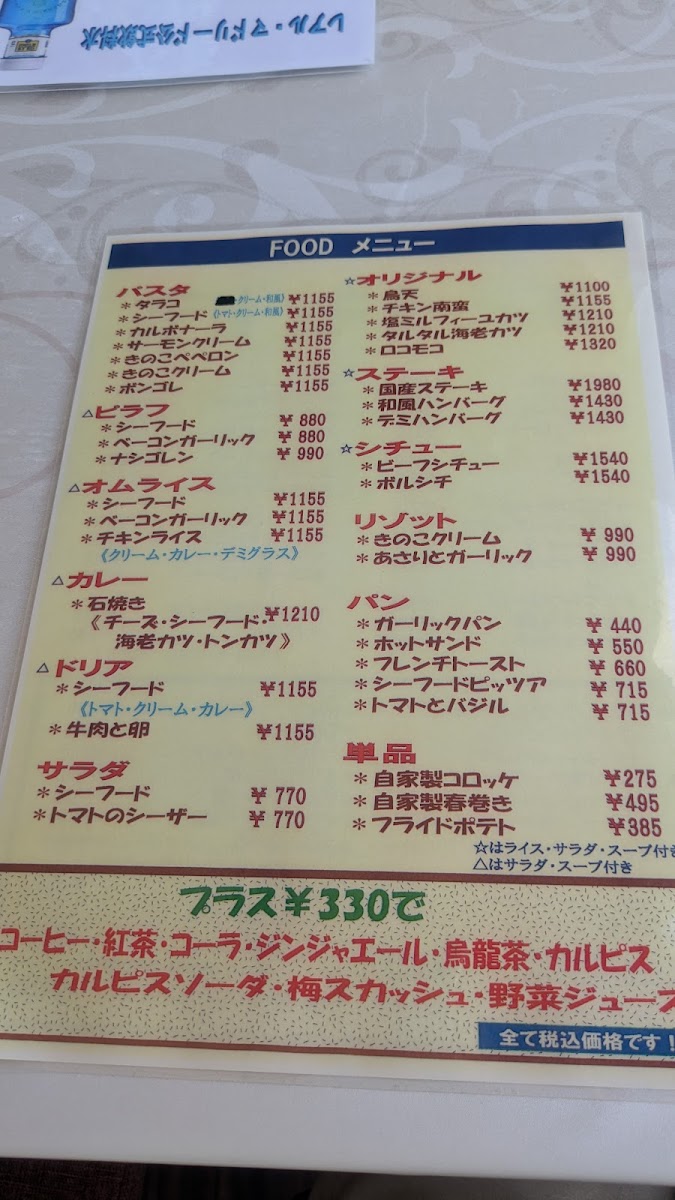 レアル・マドリード公式飲料水
FOOD メニュー
パスタ
＊タラコ クリーム・和風》 ¥1155
＊シーフード 《トマト・クリーム・和風》 ¥1155
＊カルボナーラ ¥1155
＊サーモンクリーム ¥1155
＊きのこペペロン ¥1155
＊きのこクリーム ¥1155
＊ボンゴレ ¥1155
△ピラフ
＊シーフード ¥ 880
＊ベーコンガーリック ¥ 880
＊ナシゴレン ¥ 990
△オムライス
＊シーフード ¥1155
＊ベーコンガーリック ¥1155
＊チキンライス ¥1155
《クリーム・カレー・デミグラス》
△カレー
＊石焼き ¥1210
《チーズ・シーフード・
海老カツ・トンカツ》
△ドリア
＊シーフード ¥1155
《トマト・クリーム・カレー》
＊牛肉と卵 ¥1155
サラダ
＊シーフード ¥ 770
＊トマトのシーザー ¥ 770
☆オリジナル
＊鳥天 ¥1100
＊チキン南蛮 ¥1155
＊塩ミルフィーユカツ ¥1210
＊タルタル海老カツ ¥1210
＊ロコモコ ¥1320
☆ステーキ
＊国産ステーキ ¥1980
＊和風ハンバーグ ¥1430
＊デミハンバーグ ¥1430
☆シチュー
＊ビーフシチュー ¥1540
＊ボルシチ ¥1540
リゾット
＊きのこクリーム ¥ 990
＊あさりとガーリック ¥ 990
パン
＊ガーリックパン ¥ 440
＊ホットサンド ¥ 550
＊フレンチトースト ¥ 660
＊シーフードピッツア ¥ 715
＊トマトとバジル ¥ 715
単品
＊自家製コロッケ ¥275
＊自家製春巻き ¥495
＊フライドポテト ¥385
☆はライス・サラダ・スープ付き
△はサラダ・スープ付き
プラス¥330で
コーヒー・紅茶・コーラ・ジンジャエール・烏龍茶・カルピス
カルピスソーダ・梅スカッシュ・野菜ジュース
全て税込価格です！